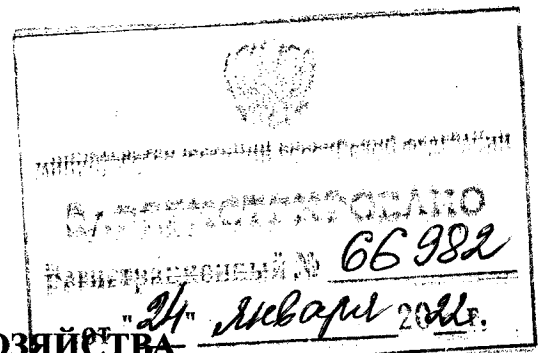 МИНИСТЕРСТВО ЮСТИЦИИ РОССИЙСКОЙ ФЕДЕРАЦИИ
ЗАРЕГИСТРИРОВАНО
Регистрационный № 66982
от "24" января 2022 г.
ОЗЯЙСТВА